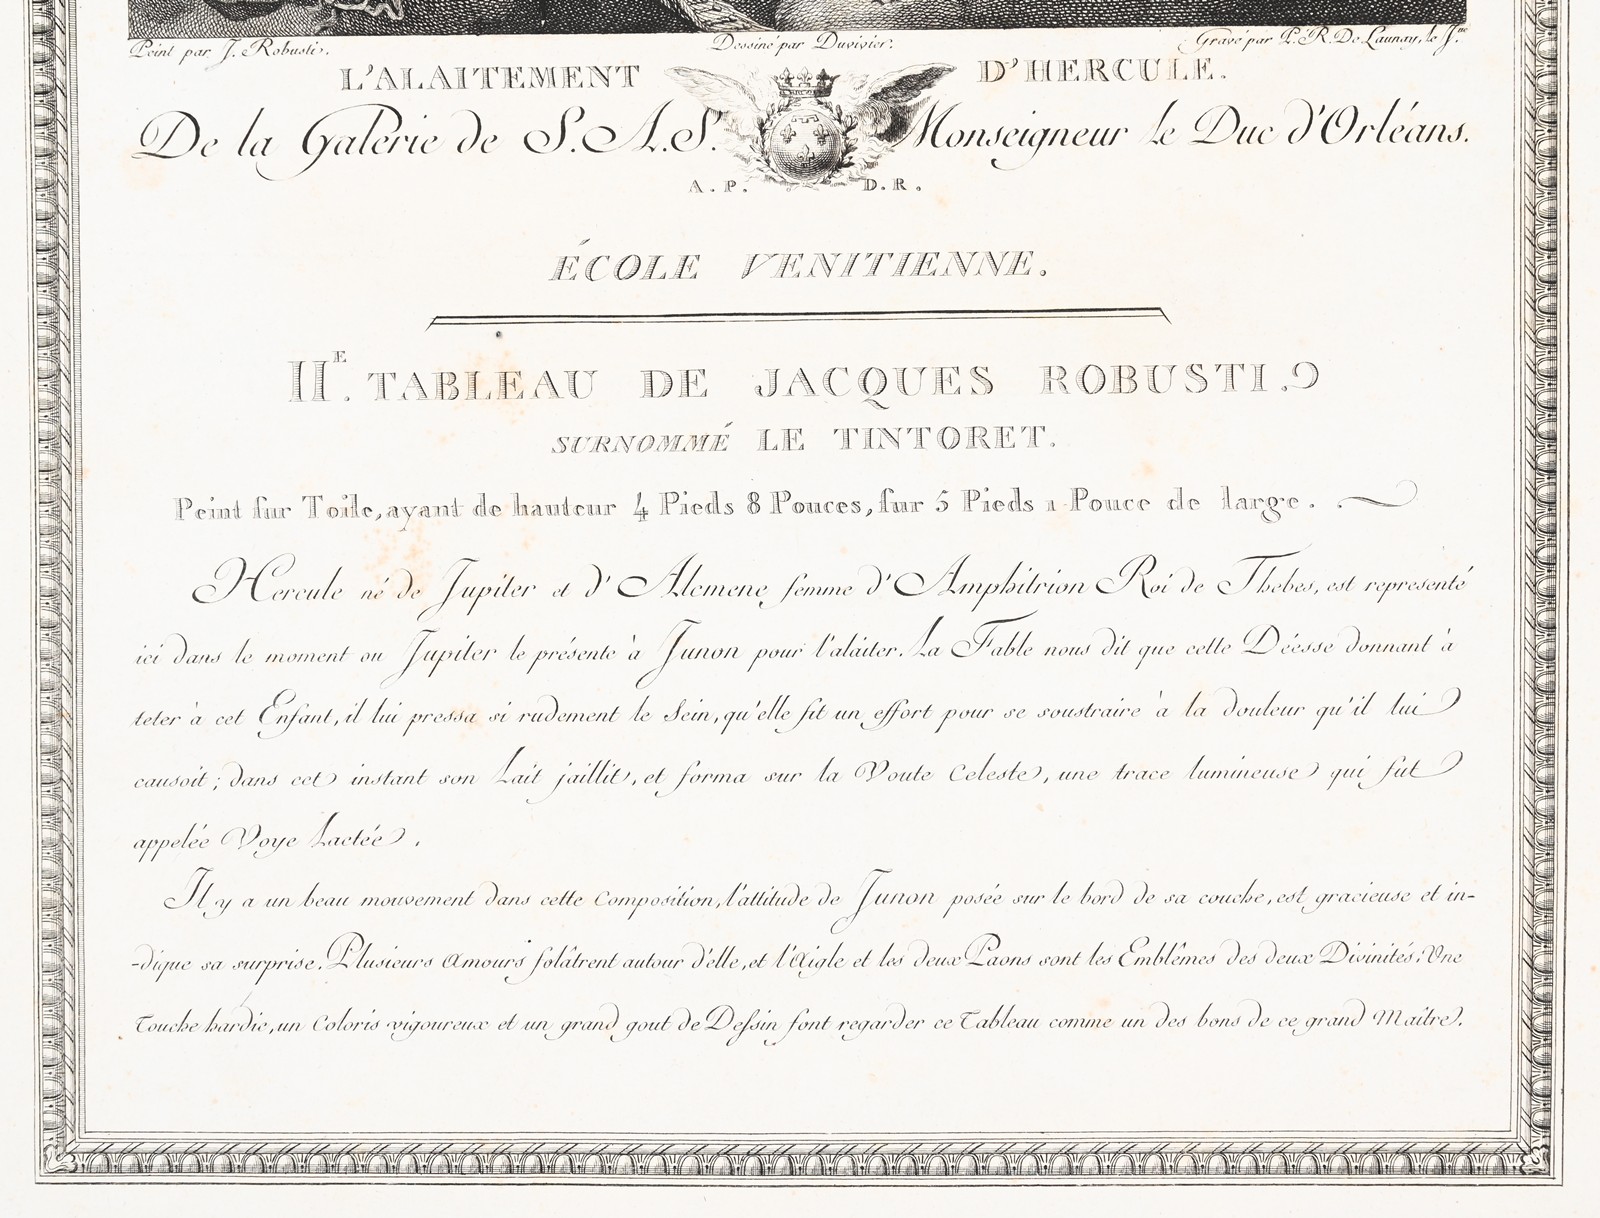 Peint par J. Robusti.
Dessiné par Duvivier.
Gravé par P. R. De Launay, le Jne.
L'ALAITEMENT D'HERCULE.
De la Galérie de S. A. S. Monseigneur le Duc d'Orléans.
A. P. D. R.
ÉCOLE VENITIENNE.
IIE. TABLEAU DE JACQUES ROBUSTI.
SURNOMMÉ LE TINTORET.
Peint sur Toile, ayant de hauteur 4 Pieds 8 Pouces, sur 5 Pieds 1 Pouce de large.
Hercule né de Jupiter et d'Alcmene, femme d'Amphitrion Roi de Thebes, est representé
ici dans le moment ou Jupiter le présente à Junon pour l'alaiter. La Fable nous dit que cette Déesse donnant à
teter à cet Enfant, il lui pressa si rudement le Sein, qu'elle fit un effort pour se soustraire à la douleur qu'il lui
causoit; dans cet instant son Lait jaillit, et forma sur la Voute Celeste, une trace lumineuse qui fut
appelée Voye Lactée.
Il y a un beau mouvement dans cette Composition, l'attitude de Junon posée sur le bord de sa couche, est gracieuse et in-
-dique sa surprise. Plusieurs Amours folâtrent autour d'elle, et l'Aigle et les deux Paons sont les Emblêmes des deux Divinités: Une
Touche hardie, un Coloris vigoureux et un grand gout de Dessin font regarder ce Tableau comme un des bons de ce grand Maître.